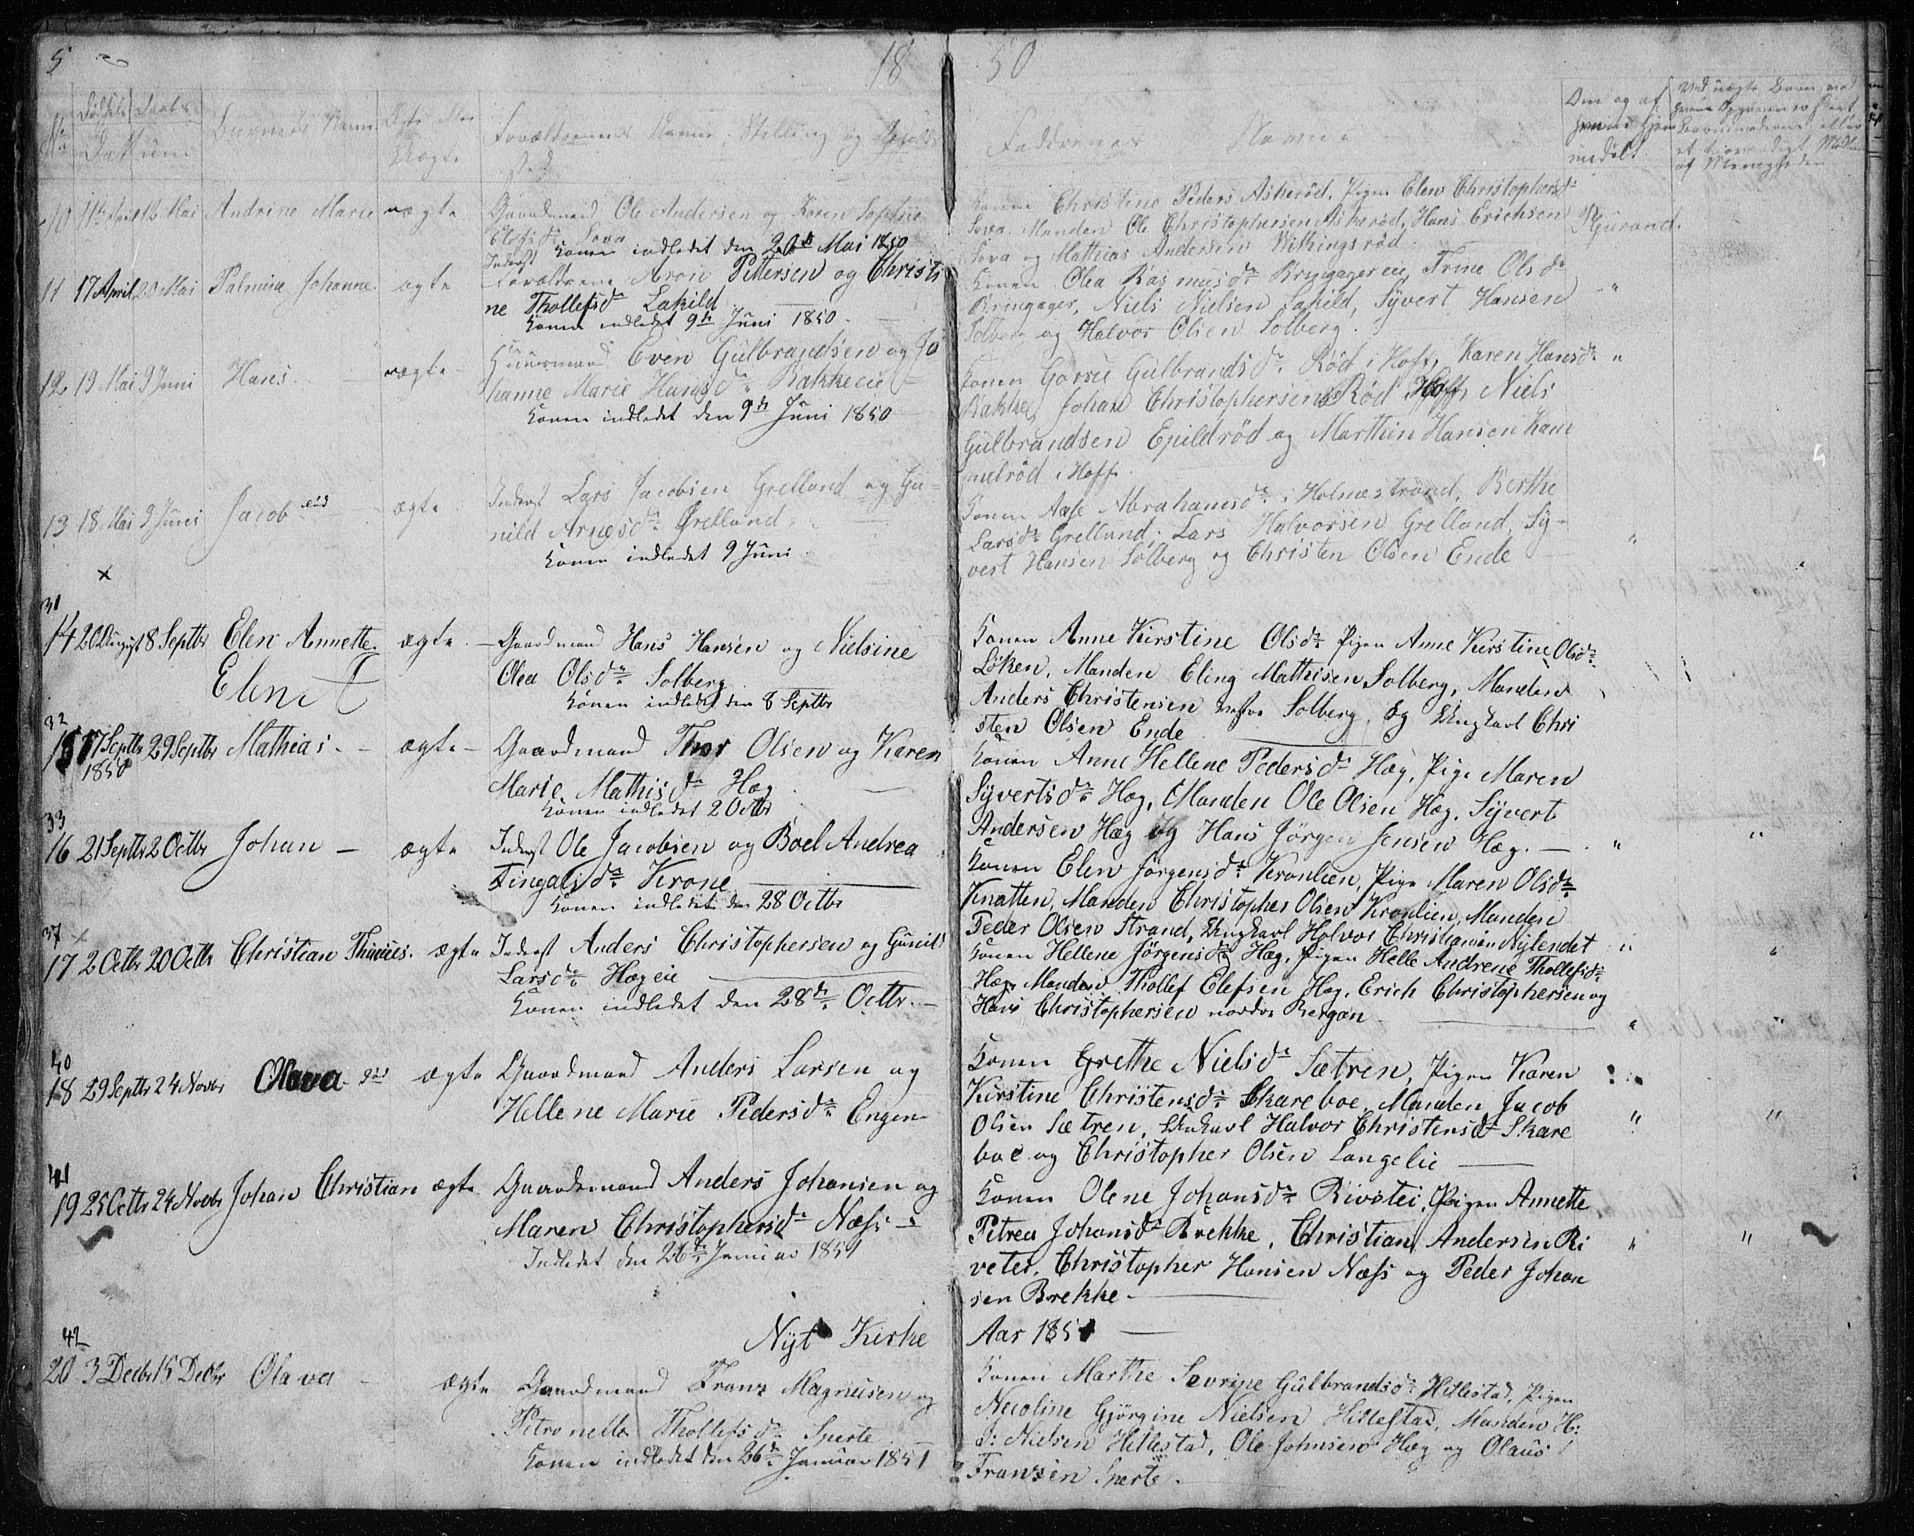 5
18 50
No
Fødsels Daabs
Datum
Barnets Navn
Ægte eller
Uægte
Forældrenes Navne, Stilling og Opholds
sted
Faddrenes Navne
Om og af
hvem hjem
medøbt
10 11te April 12 Mai Andrine Marie uægte
Gaardmand Ole Andersen og Karen Sophie
Sova
Inderst Konen indledet den 20de Mai 1850
Konen Christine Peders Askerød, Pigen Elen Christophersdr
Sova. Manden Ole Christophersen Askerød, Hans Erichsen
Sova og Mathias Andersen Withingsrød
11 17 April 20 Mai Palmine Johanne ægte
Forældrene Aron Pettersen og Christi
ne Thollefsdr Lakild
Konen indledet 9de Juni 1850.
Konen Olea Rasmusdr Bringagereie, Trine Olsdr
Bringager, Niels Nielsen Lakild, Syvert Hansen
Solberg og Halvor Olsen Solberg.
12 19 Mai 9 Juni Hans. uægte
Huusmand Even Gulbrandsen og Jo
hanne Marie Hansdr Bakkeeie
Konen indledet den 9de Juni 1850
Konen Gorse Gulbrandsdr Rød i Hoff, Karen Hansdr
Bakke, Johan Christophersen Rød Hoff, Niels
Gulbrandsen Epildrød og Marthin Hansen Kam
melrød i Hoff.
13 18 Mai 9 Juni Jacob ægte
Inderst Lars Jacobsen Grelland og Gu-
nild Arnesdr Grelland
Konen indledet 9 Juni
Konen Aase Abrahamsdr i Holmestrand, Berthe
Larsdr Grelland, Lars Halvorsen Grelland, Sy-
vert Hansen Solberg og Christen Olsen Ende
x
31
14 20 August 8 Septbr Elen Annette. ægte.
Gaardmand Hans Hansen og Nielsine
Elen
Olea Olsdr Solberg
Konen indledet den 8 Septbr
Konen Anne Kirstine Olsdr Pigen Anne Kirstine Olsdr
Løken, Manden Eling Mathisen Solberg, Manden
Anders Christensen vestre Solberg, og Ungkarl Chri
sten Olsen Ende
32
15 17 Septbr 29 Septbr Mathias. ægte
1850
Gaardmand Thor Olsen og Karen
Marie Mathisdr Hæg
Konen indledet 20 Octbr
Konen Anne Hellene Pedersdr Hæg, Pige Maren
Syvertsdr Hæg, Manden Ole Olsen Hæg, Syvert
Andersen Hæg og Hans Jørgen Jensen Hæg.
33
16 21 Septbr 2 Octbr Johan ægte
Inderst Ole Jacobsen og Boel Andrea
Tingalsdr Krone
Konen indledet den 28 Octbr
Konen Elen Jørgensdr Kronlien, Pige Maren Olsdr
Knatten, Manden Christopher Olsen Kronlien, Manden
Peder Olsen Strand, Ungkarl Halvor Christiansen Nylendet
37
17 2 Octbr 20 Octbr Christian Thinius. ægte
Inderst Anders Christophersen og Gunild
Larsdr Hægeie
Konen indledet den 28de Octbr.
Konen Hellene Jørgensdr Hæg, Pigen Helle Andrene Thollefsdr
Hæg, Manden Thollef Elefsen Hæg, Erich Christophersen og
Hans Christophersen nordre Bergan
40
18 29 Septbr 24 Novbr Olava ægte
Gaardmand Anders Larsen og
Hellene Marie Pedersdr Engen
Konen Grethe Nielsdr Sætren, Pigen Karen
Kirstine Christensdr Skareboe, Manden Jacob
Olsen Sætren, Unkarl Halvor Christensdr Skare
boe og Christopher Olsen Langelie
41
19 25 Octbr 24 Novbr Johan Christian ægte
Gaardsmand Anders Johansen og
Maren Christophersdr Næss
Indledet den 26de Januar 1851
Konen Olene Johansdr Rivetei, Pigen Annette
Petrea Johansdr Brekke, Christian Andersen Ri
vetei, Christopher Hansen Næss og Peder Johan
sen Brekke
Nyt Kirke Aar 1851
42
20 3 Decbr 15 Decbr Olava ægte
Gaardmand Franz Magnusen og
Petronelle Thollefsdr Sperte
Konen indledet den 26de Januar 1851
Konen Marthe Sevrine Gulbrandsdr Hillestad, Pigen
Nicoline Gjørgine Nielsen Hillestad, Manden H:
J: Nielsen Hillestad, Ole Johnsen Hæg og Olaus
Franzen Sperte.